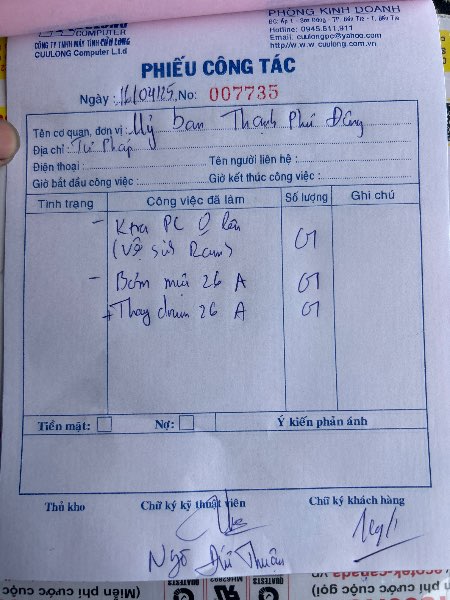 COMPUTER
CÔNG TY TNHH MÁY TÍNH CỬU LONG
CUULONG Computer L.t.d
PHÒNG KINH DOANH
Hotline: 0945.611.911
Email: cuulongpc@yahoo.com
http//www.cuulong.com.vn
PHIẾU CÔNG TÁC
Ngày: 16/04/25 No: 007735
Tên cơ quan, đơn vị: Uỷ ban Thạnh Phú Đông
Địa chỉ: Tư Pháp
Điện thoại: Tên người liên hệ:
Giờ bắt đầu công việc: Giờ kết thúc công việc:
Tình trạng Công việc đã làm Số lượng Ghi chú
- Ktra PC O lên 01
(Vệ sinh Ram)
- Bơm mực 26 A 01
+ Thay drum 26 A 01
Tiền mặt: Nợ: Ý kiến phản ánh
Thủ kho Chữ ký kỹ thuật viên Chữ ký khách hàng
Ngô Thuân
(Miễn phí cước gọi)
QUATEST3